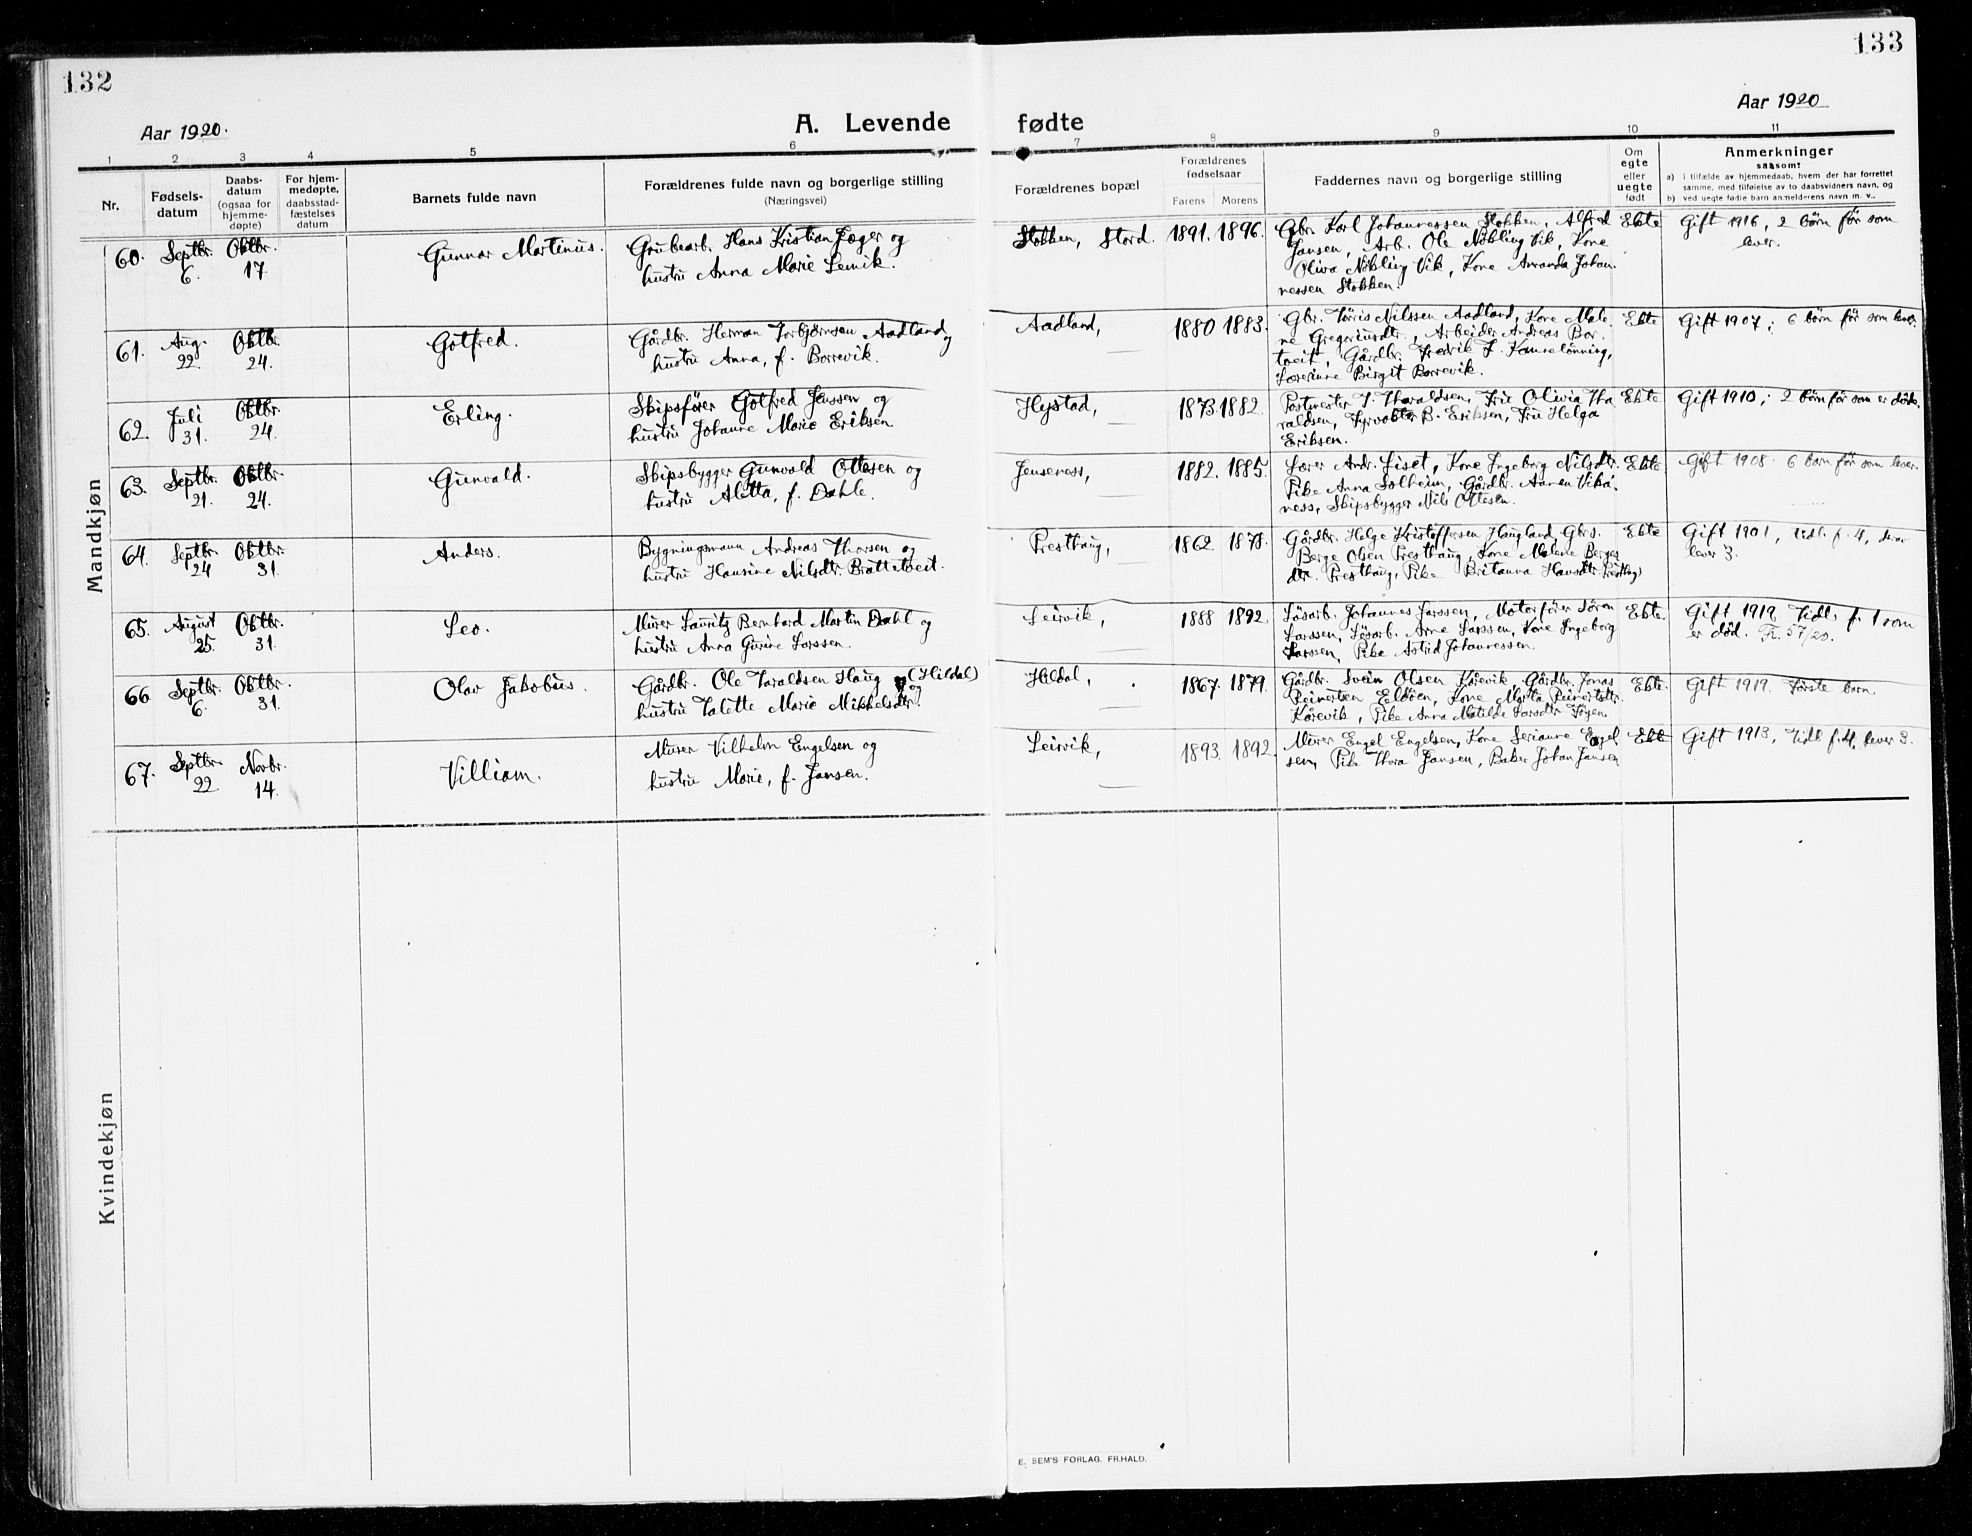 132
133
Aar 1920.
A. Levende
fødte
Aar 1920
1 2 3 4 5 6 7 8 9 10 11
Nr.
Fødsels-
datum
Daabs-
datum
(ogsaa for
hjemme-
døpte)
For hjem-
medøpte,
daabsstad-
fæstelses
datum
Barnets fulde navn
Forældrenes fulde navn og borgerlige stilling
(Næringsvei)
Forældrenes bopæl
Forældrenes
fødselsaar
Farens Morens
Faddernes navn og borgerlige stilling
Om
egte
eller
uegte
født
Anmerkninger
saasomt
a) i tilfælde av hjemmedaab, hvem der har forrettet
samme, med tilføielse av to daabsvidners navn, og
b) ved uegte fødte barn anmelderens navn m. v..
Mandkjøn
60. Septbr. 6. Oktbr. 17.
Gunnar Martinus.
Grubearb. Hans Kristian Jæger og
hustru Anna Marie Lemik.
Stokken, Stord. 1891. 1896.
Gbr. Karl Johannessen Stokken, Alfred
Jansen, Arb. Ole Nøbling Vik, Kone
Oliva Nøbling Vik, Kone Amanda Johan-
nessen Stokken.
Ekte
Gift 1916, 2 børn før som
lever.
61. Aug. 22 Oktbr. 24.
Gotfred.
Gårdbr. Herman Torbjørnsen Aadland og
hustru Anna, f. Borrevik.
Aadland, 1880 1883.
Gbr. Tørris Nilssen Aadland, Kone Male-
ne Gregoriusdtr., Arbeider Andreas Bor-
tveit, Gårdbr. Fredrik J. Kannelønning,
Lærerinne Birgit Borrevik.
Ekte
Gift 1907; 6 børn før som lever.
62. Juli 31. Oktbr. 24.
Erling.
Skipsfører Gotfred Jenssen og
hustru Johanne Marie Eriksen
Hystad, 1873. 1882.
Postmester J. Tharaldsen, Fru Olivia Tha-
raldsen, Fyrvokter B. Eriksen, Fru Helga
Eriksen.
Ekte
Gift 1910; 2 børn før som er døde.
63. Septbr. 21. Oktbr. 24.
Gunvald.
Skipsbygger Gunvald Ottesen og
hustru Aletta, f. Dahle.
Jenseness, 1882. 1885.
Lærer Andr. Liset, Kone Ingeborg Nilsdtr.
Pike Anna Solheim, Gårdbr. Aamen Vika-
ness, Skipsbygger Nils Ottesen.
Ekte
Gift 1908. 6 børn før som lever.
64. Septbr. 24 Oktbr. 31.
Anders.
Bygningsmann Andreas Thorsen og
hustru Hansine Nilsdtr. Brattetveit.
Presthaug, 1862. 1878.
Gårdbr. Helge Kristoffersen Haugland, Gbrs.
Berge Olsen Presthaug, Kone Malene Berges-
dtr. Presthaug, Pike Britanna Hansdtr. Presthaug
Ekte
Gift 1901, tidl. f. 4, derav
lever 3.
65. August 25. Oktbr. 31.
Leo.
Murer Lauritz Bernhard Martin Dahl og
hustru Anna Gurine Larssen.
Leirvik, 1888 1892.
Løsarb. Johannes Larssen, Motorfører Søren
Larssen, Løsarb. Arne Larssen, Kone Ingeborg
Larssen, Pike Astrid Johannessen.
Ekte
Gift 1912 Tidl. f. 1 som
er død. Fr. 57/20.
66 Septbr. 6. Oktbr. 31.
Olav Jakobus.
Gårdbr. Ole Taraldsen Haug (Hildal)
og hustru Valette Marie Mikkelsdtr.
Hildal, 1867. 1879.
Gårdbr. Svein Olsen Kårevik, Gårdbr. Jonas
Reinertsen Eldøen, Kone Marta Reinertsdtr.
Kårevik, Pike Anna Matilde Larsdtr. Tøyen
Ekte.
Gift 1919. Første barn.
67. Septbr. 22 Novbr. 14.
Villiam.
Murer Vilhelm Engelsen og
hustru Marie, f. Jansen.
Leirvik, 1893. 1892
Murer Engel Engelsen, Kone Serianne Engel-
sen, Pike Thora Jansen, Baker Johan Jansen
Ekte
Gift 1913, Tidl. f. 4, lever 3.
Kvindekjøn
E. SEM'S FORLAG. FR.HALD.